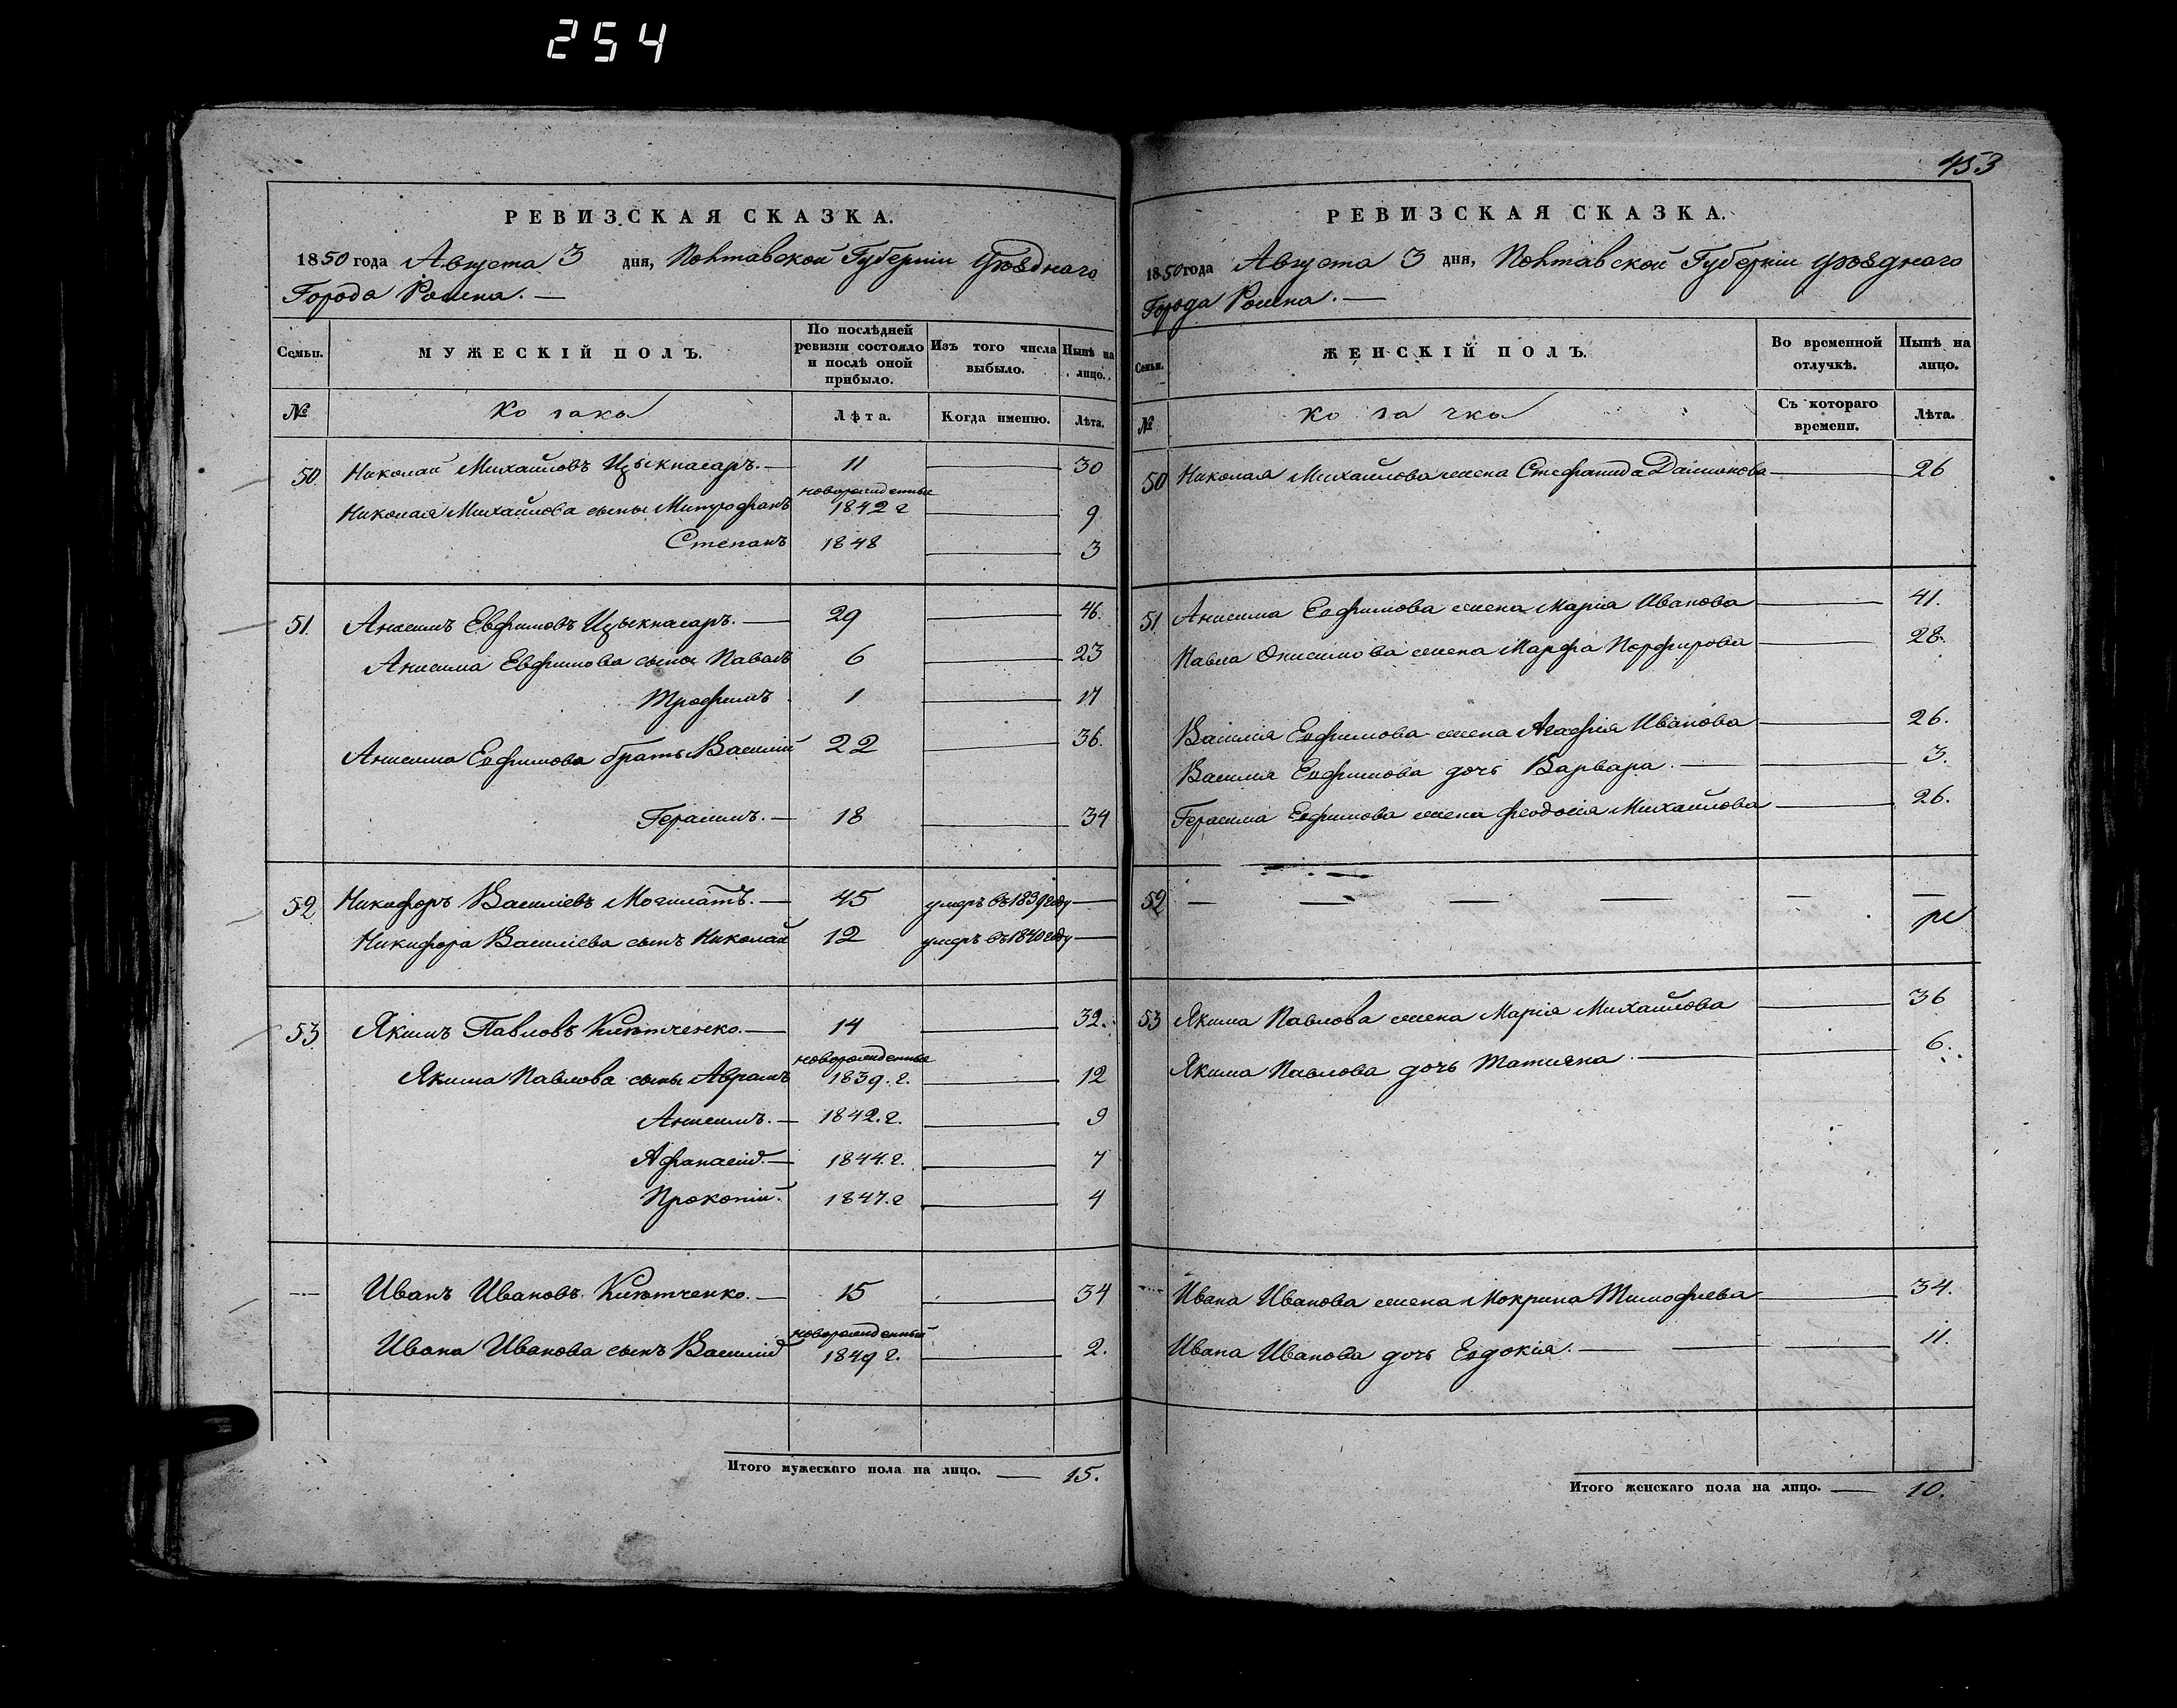 254
453
РЕВИЗСКАЯ СКАЗКА.
1850 года Августа 3 дня, Полтавской Губерніи Уѣзднаго
Города Ромна. —
Семьи.
МУЖЕСКІЙ ПОЛЪ.
По послѣдней ревизіи состояло и послѣ оной прибыло.
Изъ того числа выбыло.
Нынѣ на лицо.
№
Козаки
Лѣта.
Когда именно.
Лѣта.
50 Николай Михайловъ — 11 — 30
Николая Михайлова сыны Митрофанъ новорожденные 1842 г — 9
Степанъ 1848 — 3
51. Анисимъ Евфимовъ — 29 — 46.
Анисима Евфимова сыны Павелъ 6 — 23
Трофимъ 1 — 17
Анисима Евфимова братья Василій 22 — 36.
Герасимъ. — 18 — 34
52 Никифоръ Василіевъ Могилатъ. — 45 умеръ въ 1839 году —
Никифора Василіева сынъ Николай 12 умеръ въ 1840 году —
53 Якимъ Павловъ — 14 — 32.
Якима Павлова сыны Аврамъ новорожденные 1839. г. — 12
Анисимъ. — 1842. г. — 9
Афанасій. — 1844. г. — 7
Прокопій. 1847. г — 4
Иванъ Ивановъ — 15 — 34
Ивана Иванова сынъ Василій новорожденный 1849 г. — 2.
Итого мужескаго пола на лицо. — 15.
РЕВИЗСКАЯ СКАЗКА.
1850 года Августа 3 дня, Полтавской Губерніи Уѣзднаго
Города Ромна. —
Семьи.
ЖЕНСКІЙ ПОЛЪ.
Во временной отлучкѣ.
Нынѣ на лицо.
№
Козачки
Съ котораго времени.
Лѣта.
50 Николая Михайлова жена Стефанида — 26
51 Анисима Евфимова жена Марія Иванова — 41.
Павла Онисимова жена Марфа Порфирова — 28.
Василія Евфимова жена Агафія Иванова — 26.
Василія Евфимова дочь Варвара. — 3.
Герасима Евфимова жена Феодосія Михайлова — 26.
52 — — — — — —
53 Якима Павлова жена Марія Михайлова — 36
Якима Павлова дочь Татіяна. — 6.
Ивана Иванова жена Мокрина Тимофѣева — 34.
Ивана Иванова дочь Евдокія. — 11.
Итого женскаго пола на лицо. — 10.